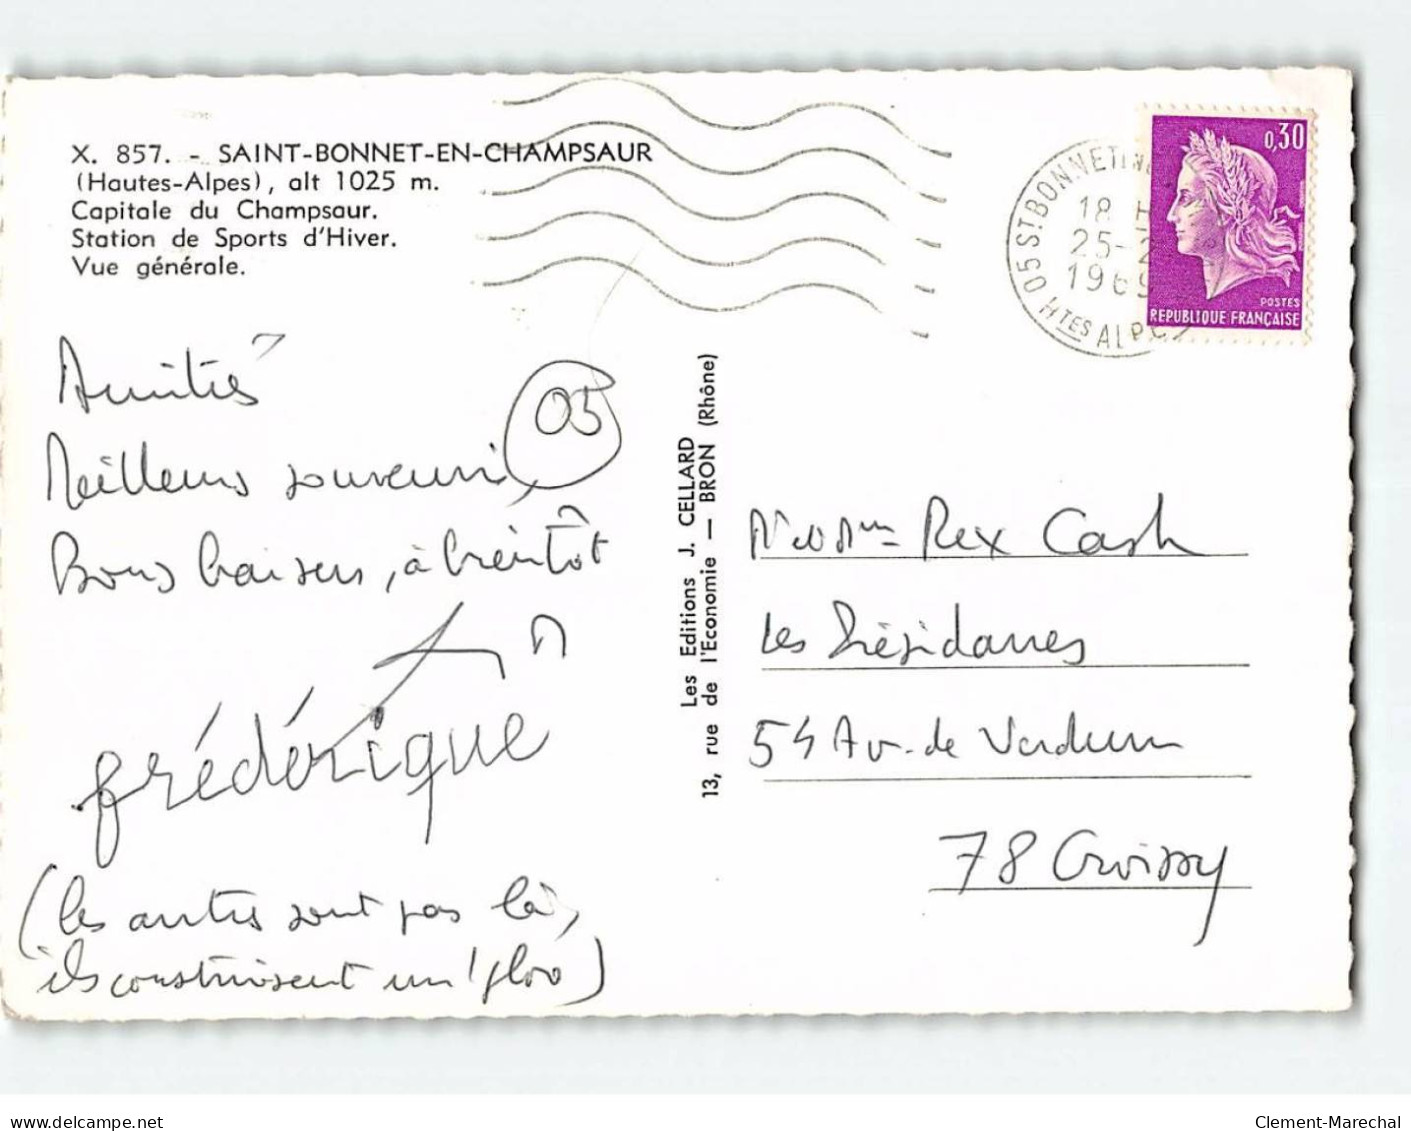 X. 857. - SAINT-BONNET-EN-CHAMPSAUR
(Hautes-Alpes), alt 1025 m.
Capitale du Champsaur.
Station de Sports d'Hiver.
Vue générale.
Amitiés
Meilleurs souvenirs,
05
Bons baisers, à bientôt
frédérique
(les autres sont pas là,
ils construisent un igloo)
Les Editions J. CELLARD
13, rue de l'Economie — BRON (Rhône)
05 ST BONNET
18 H
25-2
1969
HTES ALPES
0,30
POSTES
REPUBLIQUE FRANÇAISE
Rex Cash
Les Résidances
54 Av. de Verdun
78 Croissy
www.delcampe.net
Clement-Marechal